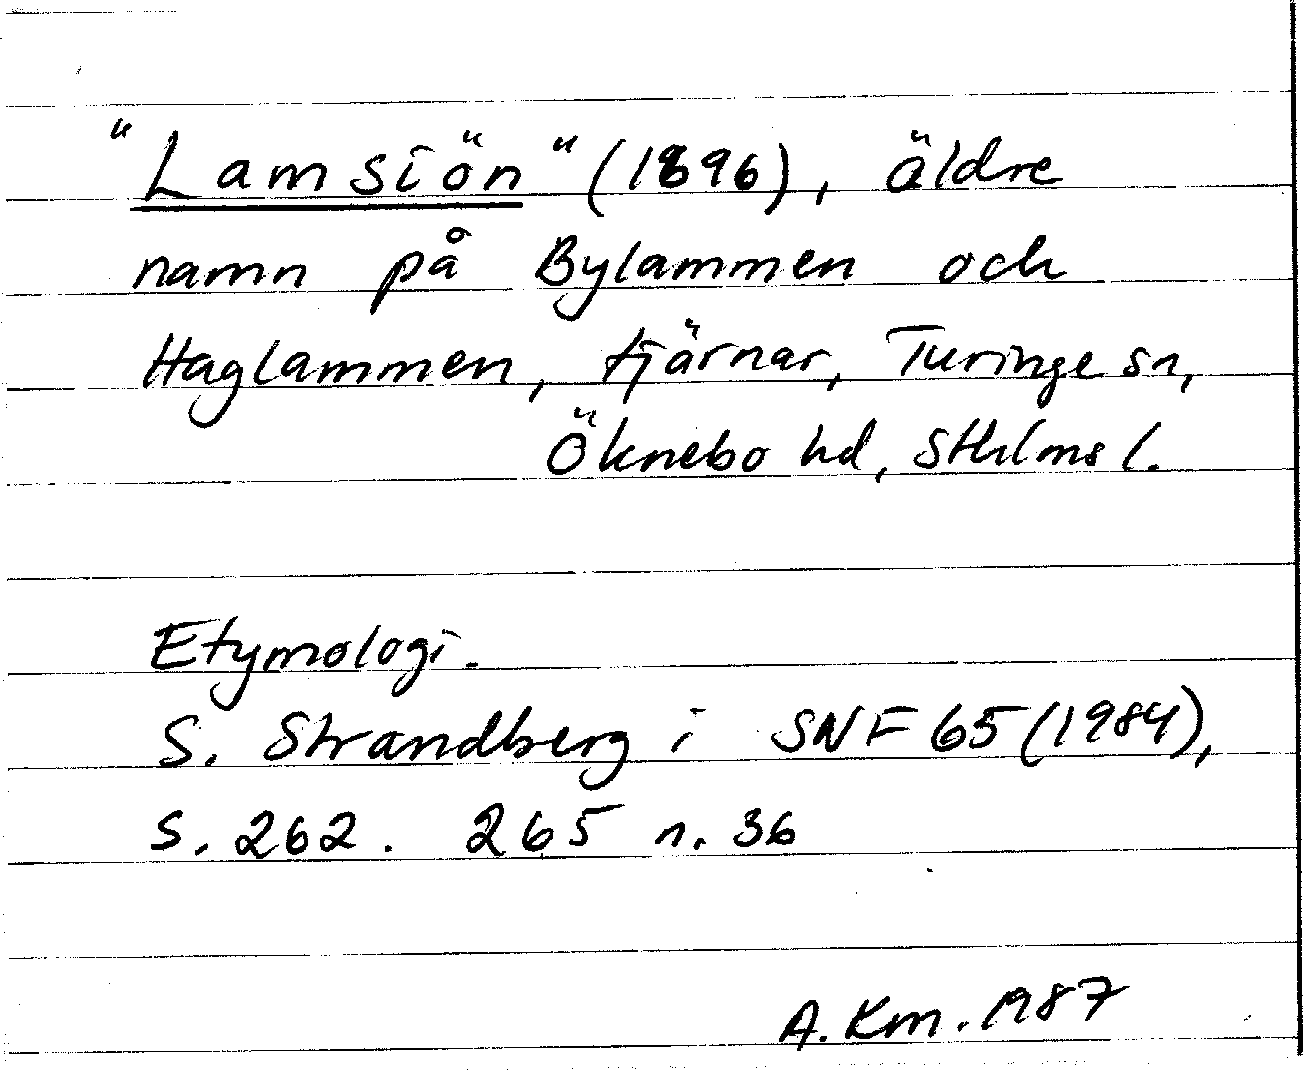 "Lamsiön" (1896), äldre
namn på Bylammen och
Haglammen, tjärnar, Turinge sn,
Öknebo hd, Sthlms l.
Etymologi.
S. Strandberg i SNF 65 (1984),
s. 262. 265 n. 36
A. Km. 1987